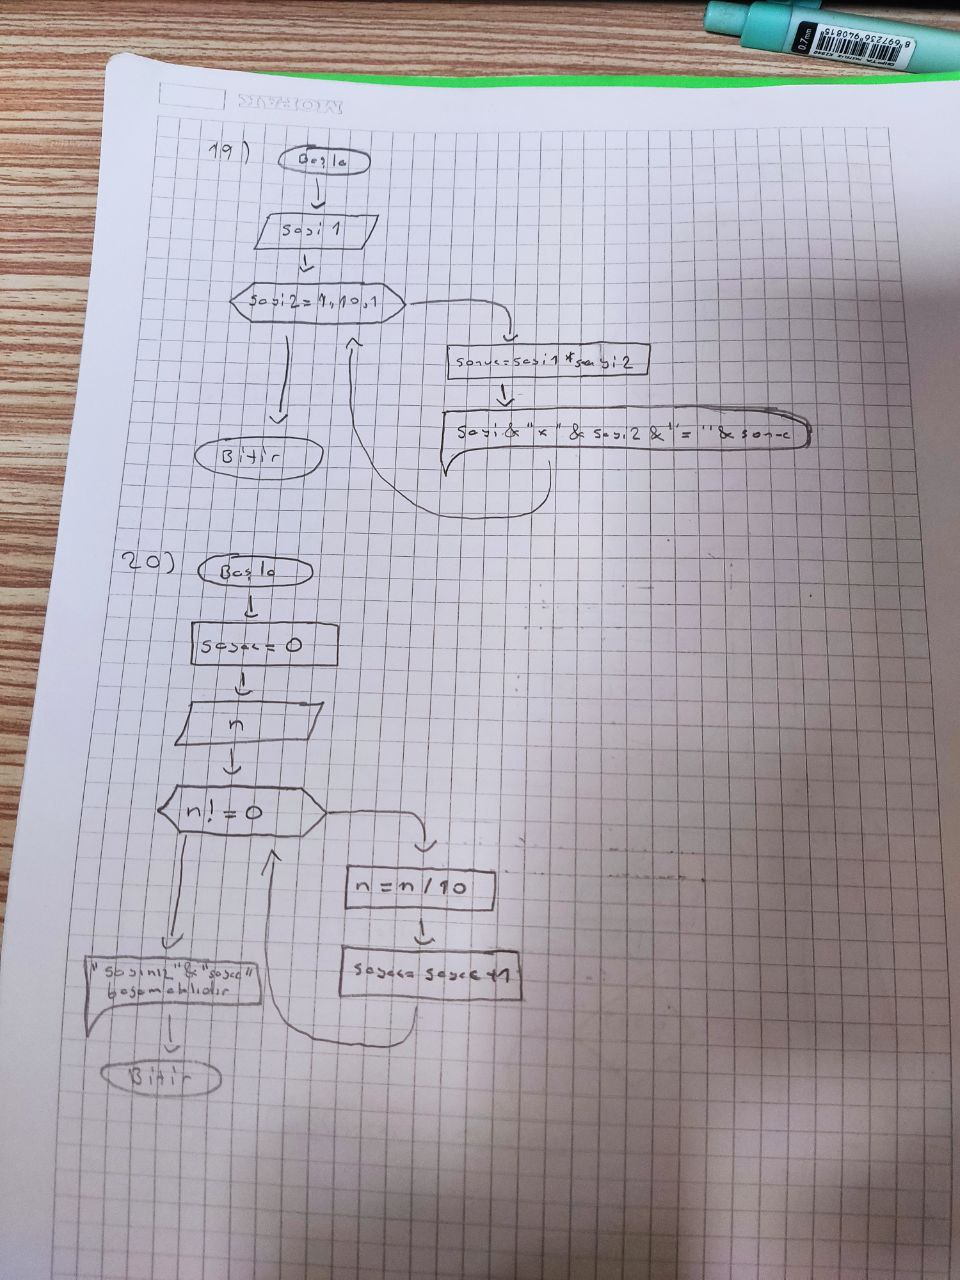 8"697236"940815
0.7mm
19)
Başla
Sayi 1
Sayi2=1,10,1
Sonuc=Sayi1*Sayi2
Sayi&"x"&sayi2&"="&sonuc
Bitir
20)
Başla
Sayac=0
n
n!=0
n=n/10
Sayac=sayac+1
"Sayiniz"&"sayac"
basamaklıdır
Bitir